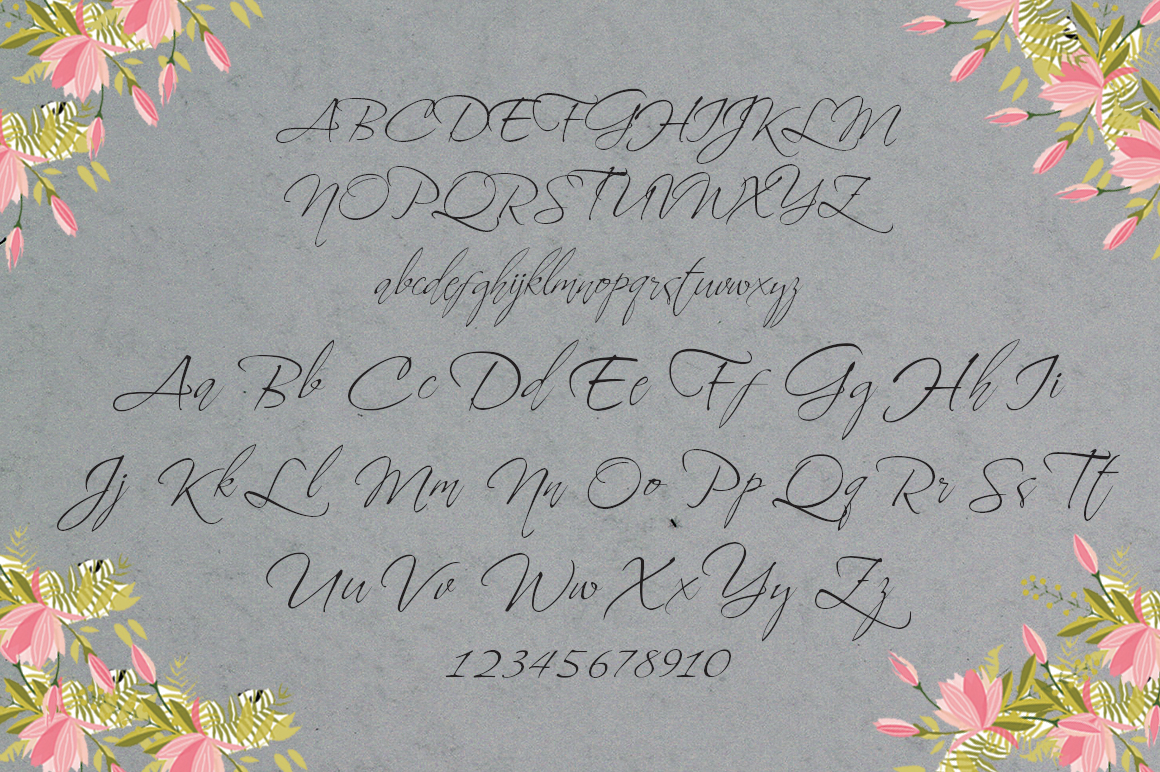 ABCDEFGHIJKLM
NOPQRSTUVWXYZ
abcdefghijklmnopqrstuvwxyz
Aa Bb Cc Dd Ee Ff Gg Hh Ii
Jj Kk Ll Mm Nn Oo Pp Qq Rr Ss Tt
Uu Vv Ww Xx Yy Zz
12345678910